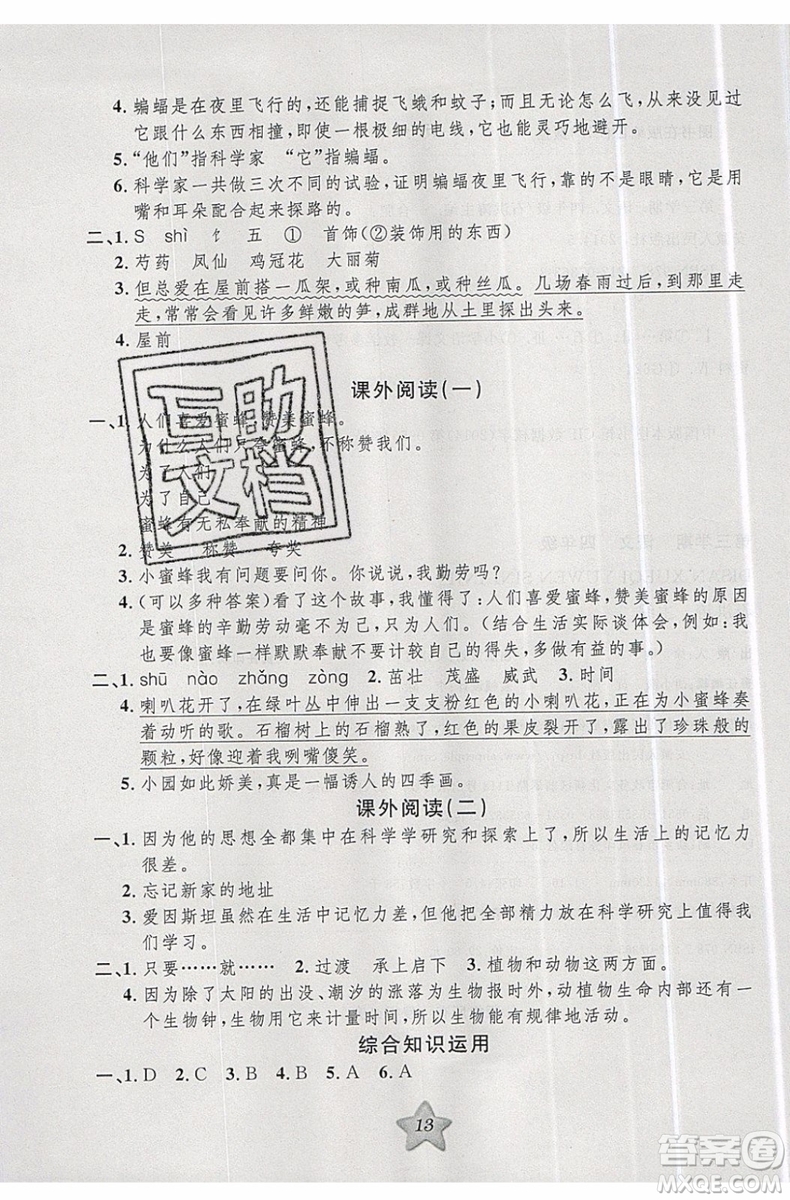 4. 蝙蝠是在夜里飞行的，还能捕捉飞蛾和蚊子；而且无论怎么飞，从来没见过
它跟什么东西相撞，即使一根极细的电线，它也能灵巧地避开。
5. “他们”指科学家 “它”指蝙蝠。
6. 科学家一共做三次不同的试验，证明蝙蝠夜里飞行，靠的不是眼睛，它是用
嘴和耳朵配合起来探路的。
二、1. S shì 饣 五 ① 首饰(②装饰用的东西)
2. 芍药 凤仙 鸡冠花 大丽菊
3. 但总爱在屋前搭一瓜架，或种南瓜，或种丝瓜。几场春雨过后，到那里走
走，常常会看见许多鲜嫩的笋，成群地从土里探出头来。
4. 屋前
课外阅读(一)
一、1. 人们喜爱蜜蜂，赞美蜜蜂。
为什么人们只夸蜜蜂，不称赞我们。
为了人们
为了自己
蜜蜂有无私奉献的精神
2. 赞美 称赞 夸奖
3. 小蜜蜂我有问题要问你。你说说，我勤劳吗？
4. (可以多种答案)看了这个故事，我懂得了：人们喜爱蜜蜂，赞美蜜蜂的原因
是蜜蜂的辛勤劳动毫不为己，只为人们。(结合生活实际谈体会，例如：我
要像蜜蜂一样默默奉献不计较自己的得失，多做有益的事。)
二、1. shū nào zhǎng zòng 2. 茁壮 茂盛 威武 3. 时间
4. 喇叭花开了，在绿叶丛中伸出一支支粉红色的小喇叭花，正在为小蜜蜂奏
着动听的歌。石榴树上的石榴熟了，红色的果皮裂开了，露出了珍珠般的
颗粒，好像正对着我咧嘴傻笑。
5. 小园如此娇美，真是一幅诱人的四季画。
课外阅读(二)
一、1. 因为他的思想全都集中在科学学研究和探索上了，所以生活上的记忆力
很差。
2. 忘记新家的地址
3. 爱因斯坦虽然在生活中记忆力差，但他把全部精力放在科学研究上值得我
们学习。
二、1. 只要……就…… 2. 过渡 承上启下 3. 植物和动物这两方面。
4. 因为除了太阳的出没、潮汐的涨落为生物报时外，动植物生命内部还有一
个生物钟，生物用它来计量时间，所以生物能有规律地活动。
综合知识运用
一、1. D 2. C 3. B 4. B 5. A 6. A
13
互助
文档
答案圈
MXQE.COM